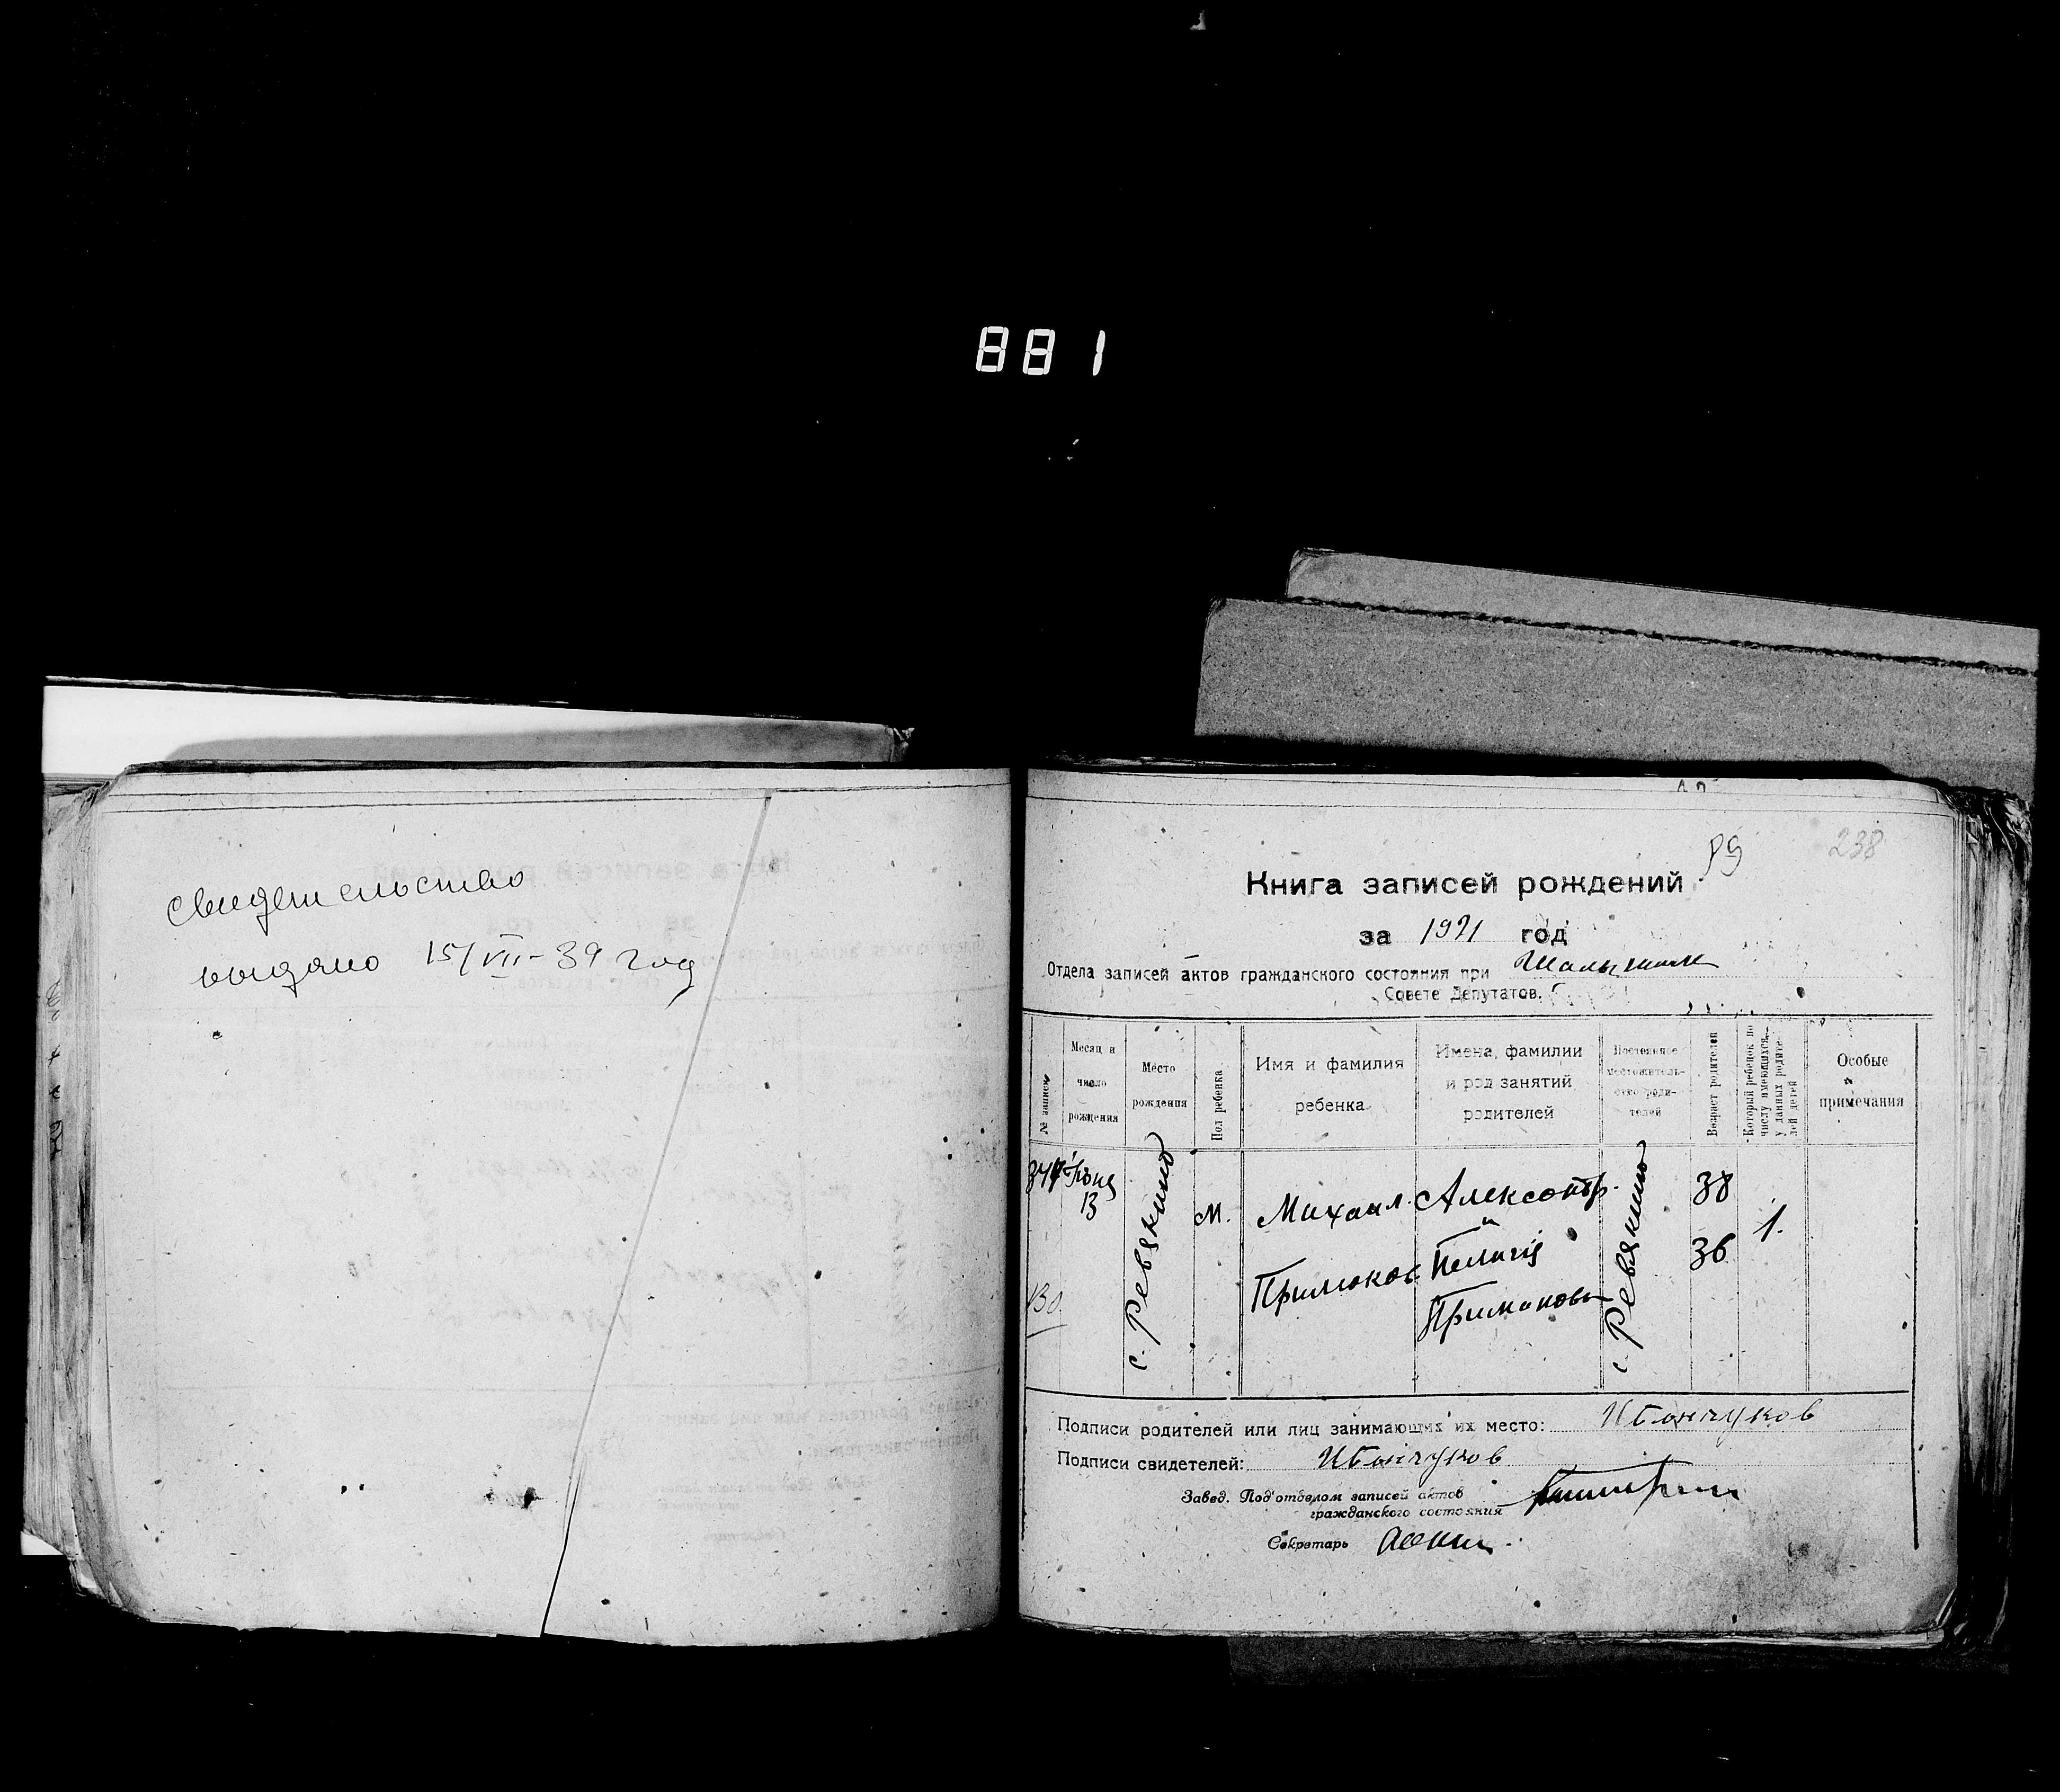 881
свидетельство
выдано 15/VII-39 год
238
Книга записей рождений
за 1921 год
Отдела записей актов гражданского состояния при
Совете Депутатов.
№ записи
Месяц и
число
рождения
Место
рождения
Пол ребенка
Имя и фамилия
ребенка
Имена, фамилии
и род занятий
родителей
Постоянное
местожитель-
ство роди-
телей
Возраст родителей
Который ребенок по
числу имеющихся
у данных родите-
лей детей
Особые
примечания
13
с. Ревякино
М.
Михаил
Примаков
Александр
и
Пелагія
Примаковы
с. Ревякино
38
36
1.
130
Подписи родителей или лиц занимающих их место:
Подписи свидетелей:
Завед. Под'отделом записей актов
гражданского состояния
Секретарь